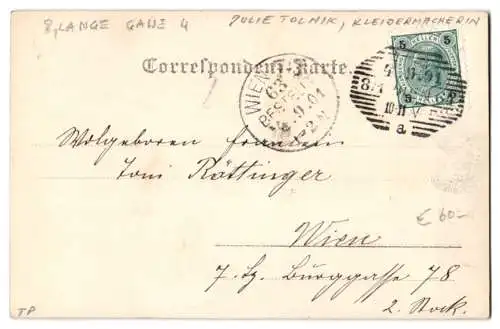 8, LANGE GASSE 4
JULIE TOLNIK, KLEIDERMACHERIN
Correspondenz-Karte.
5 HELLER 5
WIEN
63
BESTELLT
9.01
9.01
8.1
10-11 V
a
Wolgeboren Fräulein
Toni Röttinger
Wien
€ 60-
7. Bz. Burggasse 78
2. Stock.
TP